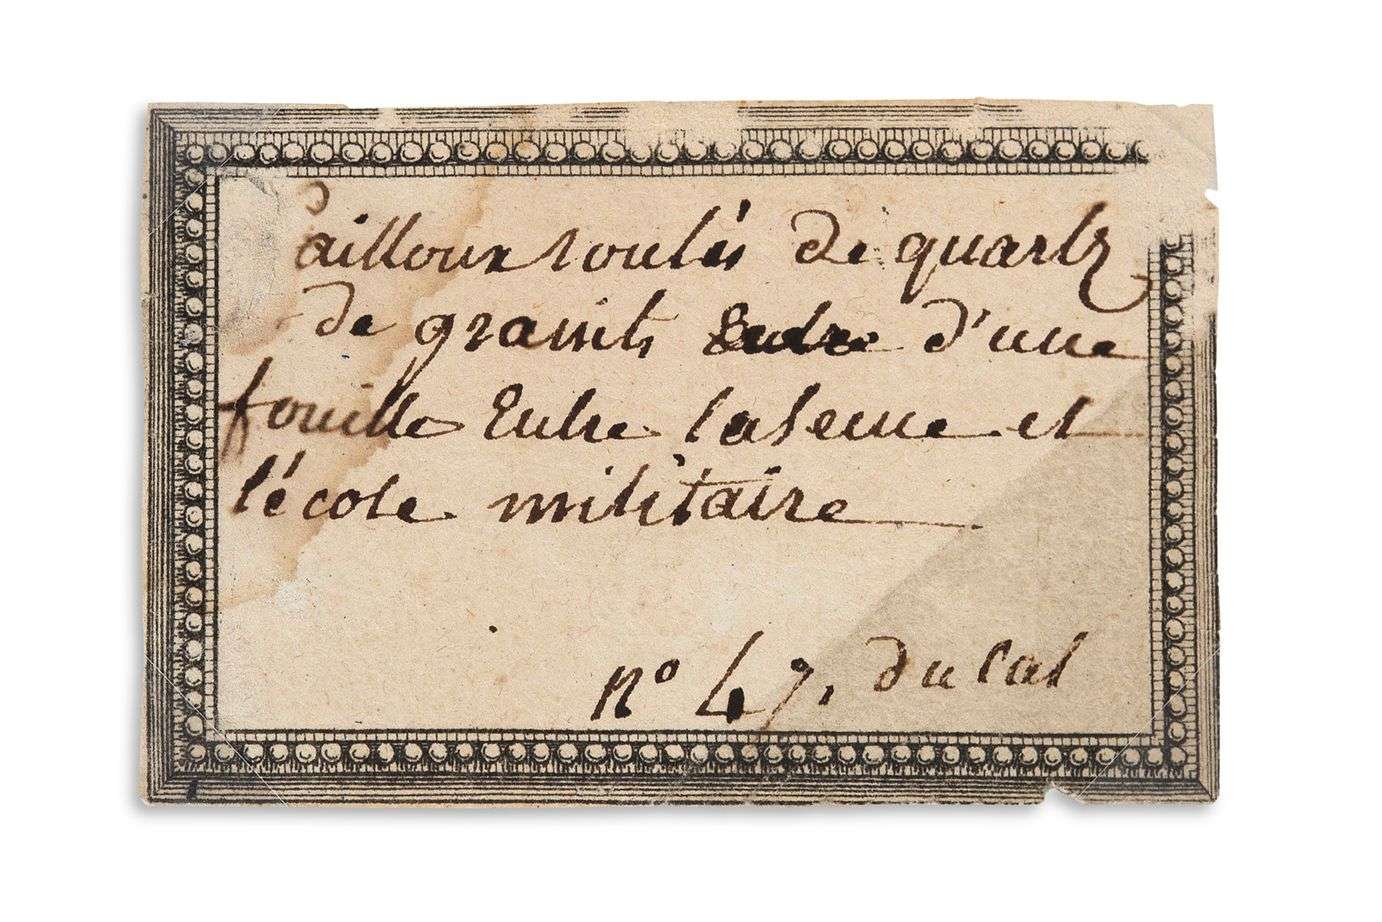 Cailloux roulés de quartz
de granits d'une
fouille Entre la seine et
l'école militaire
n° 47. du Cat